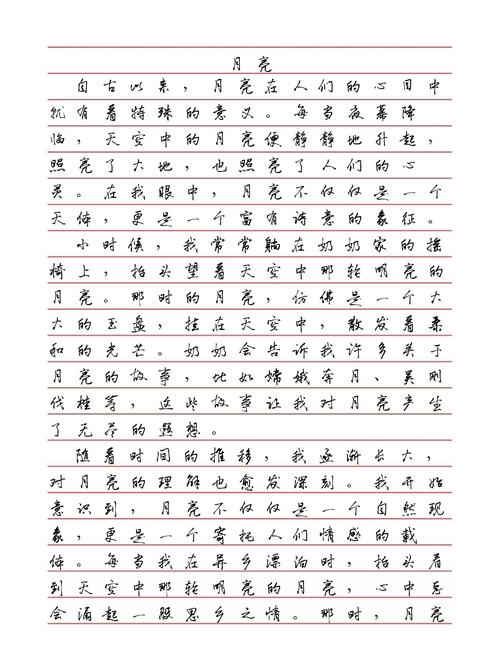 月亮
自古以来，月亮在人们的心目中
就有着特殊的意义。每当夜幕降
临，天空中的月亮便静静地升起，
照亮了大地，也照亮了人们的心
灵。在我眼中，月亮不仅仅是一个
天体，更是一个富有诗意的象征。
小时候，我常常躺在奶奶家的摇
椅上，抬头望着天空中那轮明亮的
月亮。那时的月亮，仿佛是一个大
大的玉盘，挂在天空中，散发着柔
和的光芒。奶奶会告诉我许多关于
月亮的故事，比如嫦娥奔月、吴刚
伐桂等，这些故事让我对月亮产生
了无尽的遐想。
随着时间的推移，我逐渐长大，
对月亮的理解也愈发深刻。我开始
意识到，月亮不仅仅是一个自然现
象，更是一个寄托人们情感的载
体。每当我在异乡漂泊时，抬头看
到天空中那轮明亮的月亮，心中总
会涌起一股思乡之情。那时，月亮